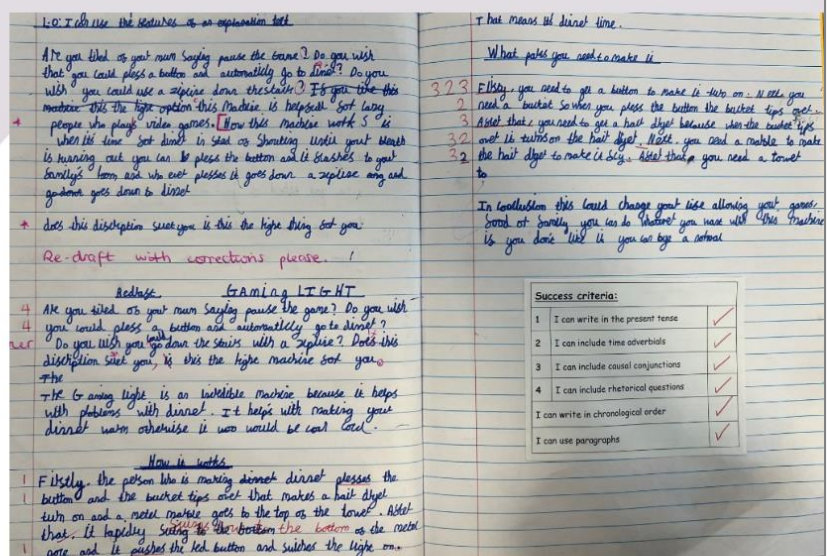 L.O: I can use the features of an explanation text
Are you tired of your mum saying pause the game? Do you wish
that you could press a button and automaticly go to diner? Do you
wish you could use a zipline down the stairs? If you like this
machine this the right option this machine is helpfull for lazy
people who plays video games. [How this machine work s is
when its time for diner in stead of shouting until your breath
is running out you can press the botton and it flashes to your
family's room and who ever presses it goes down a zipline and
go down goes down to diner
does this discription suet you is this the right thing for you
Re-draft with corrections please. !
Redraft GAMING LIGHT
4 Are you tired of your mum saying pause the game? Do you wish
4 you could press a button and automaticlly go to dinner?
Do you wish you could go down the stairs with a zipline? Does this
discription suet you, is this the right machine for you.
The
The Gaming light is an incredible machine because it helps
with problems with dinner. It helps with making your
dinner warm otherwise it woo would be coal cold.
How it works
1 Firstly, the person who is making dinner dinner presses the
1 button and the bucket tips over that makes a hair dryer
turn on and a metel marble goes to the top of the tower. After
that, it rapidly swing to the bottom the bottom of the metel
1 and it pushes the red button and swiches the light on.
That means its dinner time.
What parts you need to make it
3 2 3 Firsty, you need to get a button to make it turn on. Next you
2 need a bucket so when you press the button the bucket tips over.
3 After that you need to get a hair dryer because when the bucket tips
3 2 over it turns on the hair dryer. Next, you need a marble to make
3 2 the hair dryer to make it fly. After that, you need a tower
to
In conclusion this could change your life allowing your games,
food or family you can do whatever you want with this machine
if you don't like it you can bye a normal
Success criteria:
1 I can write in the present tense ✓
2 I can include time adverbials ✓
3 I can include causal conjunctions ✓
4 I can include rhetorical questions ✓
I can write in chronological order ✓
I can use paragraphs ✓